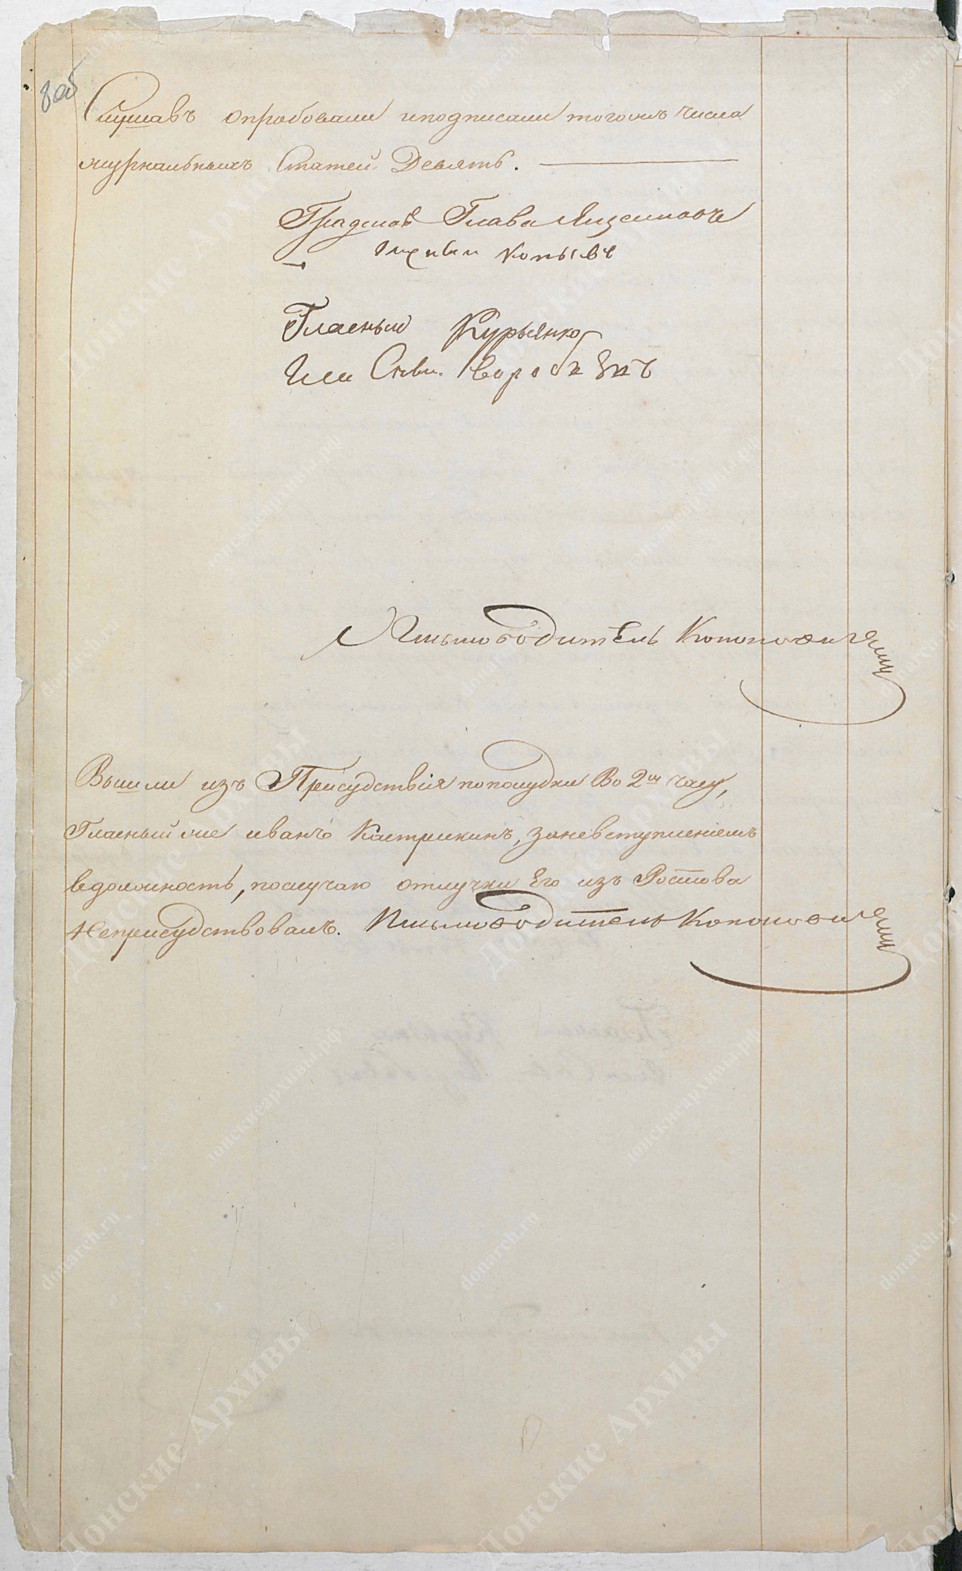 8 об
Слушавъ опробовали иподписали тогожъ числа
журнальныхъ Статей Девять.
Градской Глава Ященковъ
Гласный Копыевъ
Гласный Курьянко
Письмоводитель Кононовичъ
Вышли изъ Присудствія пополудни Во 2мъ часу,
Гласный же иванъ Кастрикинъ, заневступленіемъ
вдолжность, послучаю отлучки Его изъ Ростова
Неприсудствовалъ. Письмоводитель Кононовичъ
Донские Архивы
донскиеархивы.рф
donarch.ru